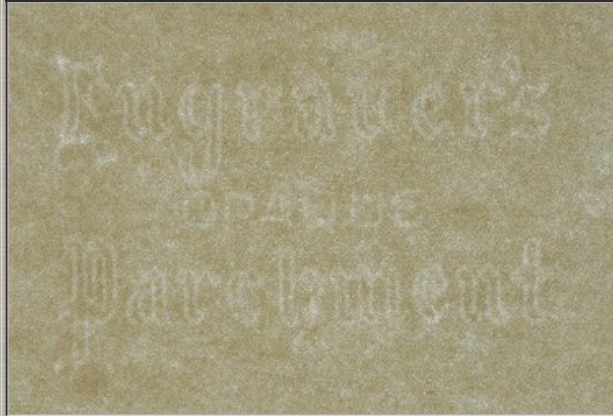 Engraver's
OPAQUE
Parchment